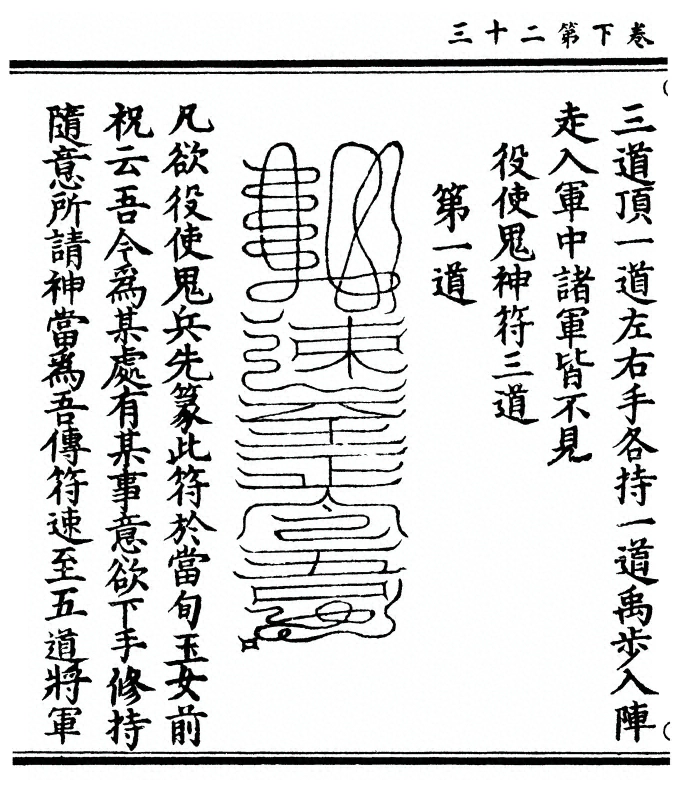 卷下第二十三
三道頂一道左右手各持一道禹步入陣
走入軍中諸軍皆不見
役使鬼神符三道
第一道
凡欲役使鬼兵先篆此符於當旬玉女前
祝云吾今爲某處有某事意欲下手修持
隨意所請神當爲吾傳符速至五道將軍